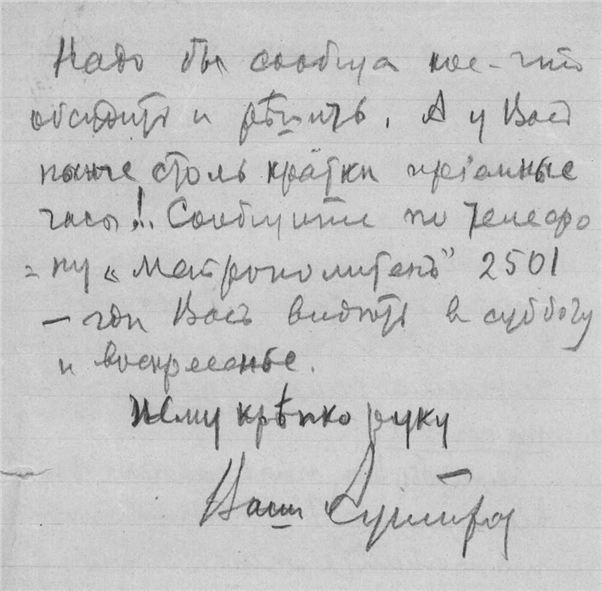 Надо бы сообща кое-что
обсудить и рѣшить. А у Васъ
нынче столь кратки прiемные
часы!.. Сообщите по телефо
=ну „Метрополитенъ" 2501
— гдѣ Васъ видѣть въ субботу
и воскресенье.
Жму крѣпко руку
Вашъ